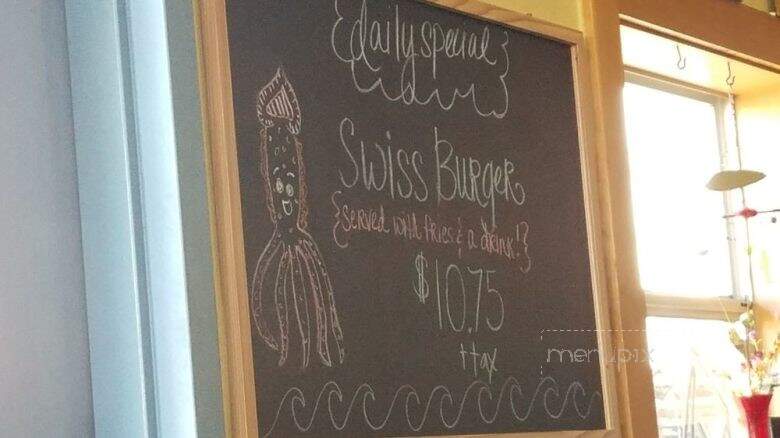 {daily special}
Swiss Burger
{served with fries & a drink!}
$10.75
+tax
menupix